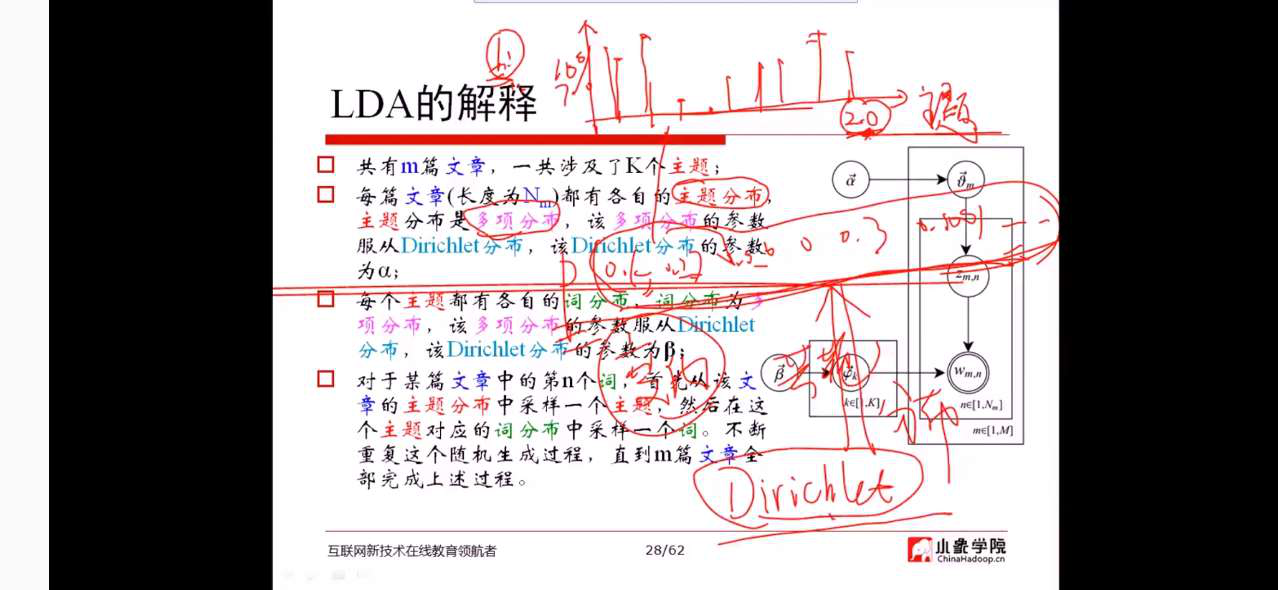 20 主题
LDA的解释
共有m篇文章，一共涉及了K个主题；
每篇文章(长度为Nm)都有各自的主题分布，
主题分布是多项分布，该多项分布的参数
服从Dirichlet分布，该Dirichlet分布的参数
为α；
每个主题都有各自的词分布，词分布为多
项分布，该多项分布的参数服从Dirichlet
分布，该Dirichlet分布的参数为β；
对于某篇文章中的第n个词，首先从该文
章的主题分布中采样一个主题，然后在这
个主题对应的词分布中采样一个词。不断
重复这个随机生成过程，直到m篇文章全
部完成上述过程。
α ϑm
0 0.3
zm,n
β φk wm,n
k∈[1,K] n∈[1,Nm]
m∈[1,M]
Dirichlet
互联网新技术在线教育领航者 28/62 小象学院
ChinaHadoop.cn